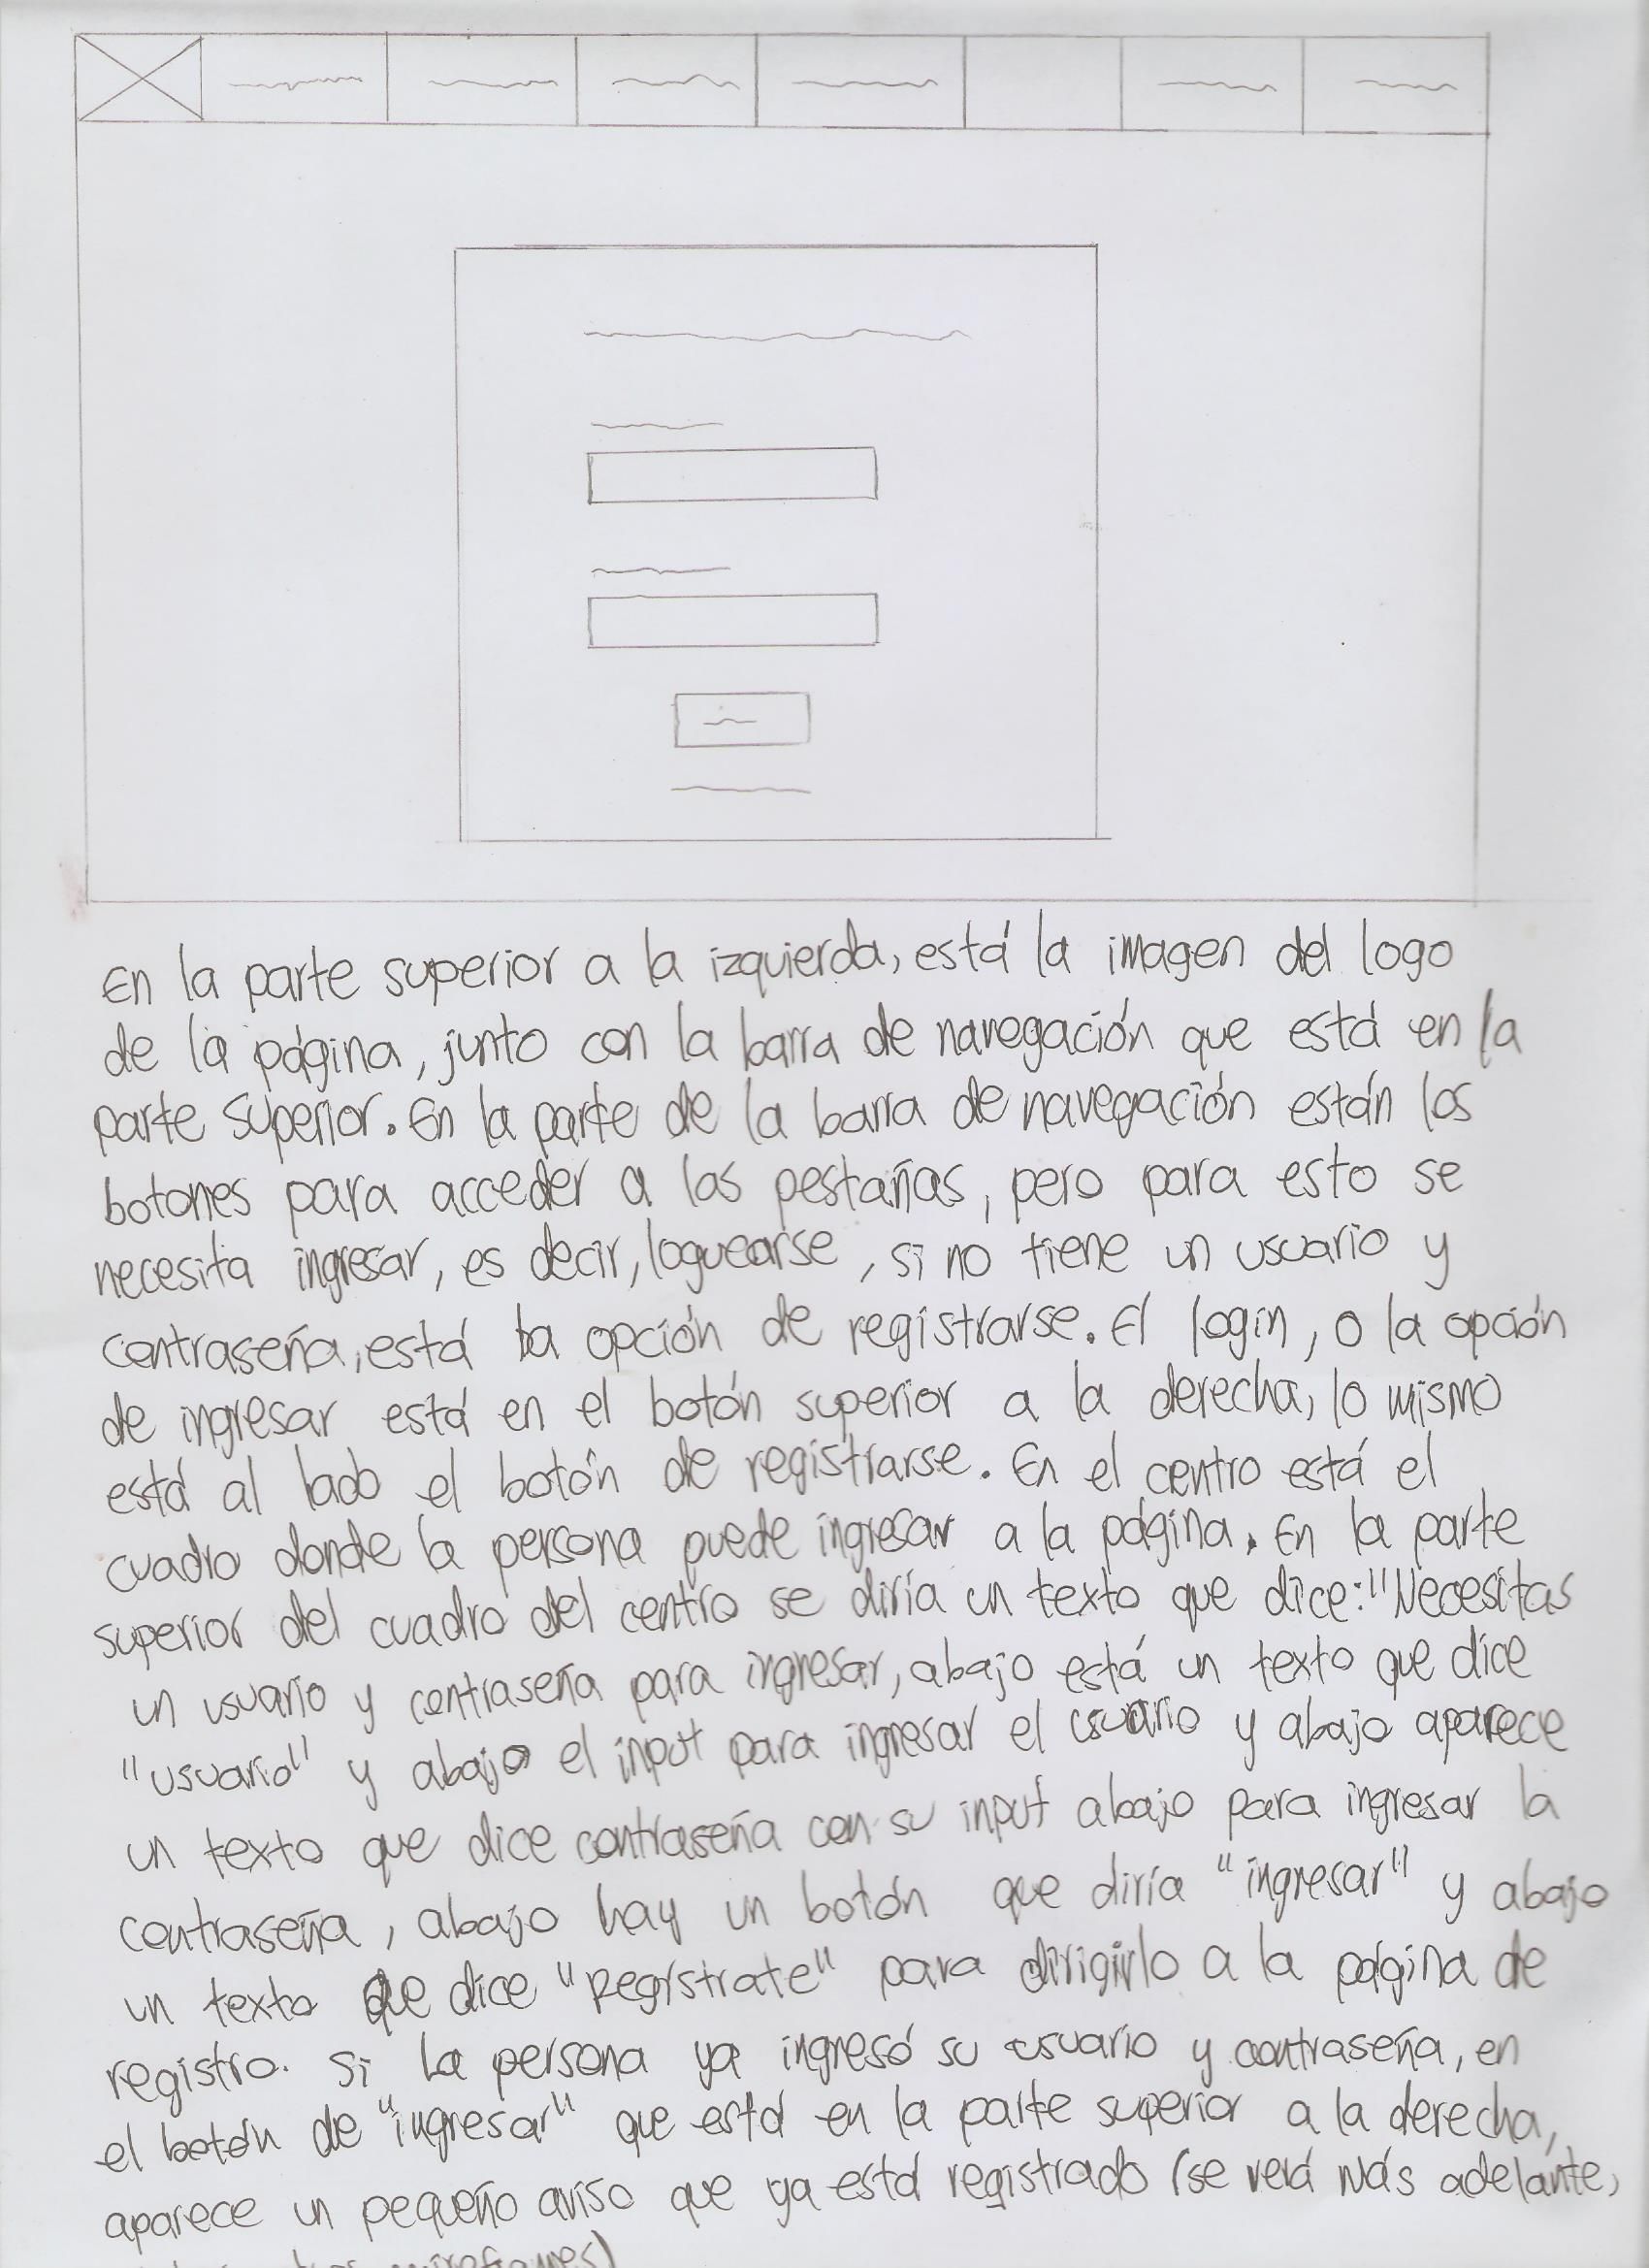 En la parte superior a la izquierda, está la imagen del logo
de la página, junto con la barra de navegación que está en la
parte superior. En la parte de la barra de navegación están los
botones para acceder a las pestañas, pero para esto se
necesita ingresar, es decir, loguearse, si no tiene un usuario y
contraseña, está la opción de registrarse. El login, o la opción
de ingresar está en el botón superior a la derecha, lo mismo
está al lado el botón de registrarse. En el centro está el
cuadro donde la persona puede ingresar a la página. En la parte
superior del cuadro del centro se diría un texto que dice: "Necesitas
un usuario y contraseña para ingresar, abajo está un texto que dice
"usuario" y abajo el input para ingresar el usuario y abajo aparece
un texto que dice contraseña con su input abajo para ingresar la
contraseña, abajo hay un botón que diría "ingresar" y abajo
un texto que dice "Regístrate" para dirigirlo a la página de
registro. Si la persona ya ingresó su usuario y contraseña, en
el botón de "ingresar" que está en la parte superior a la derecha,
aparece un pequeño aviso que ya está registrado (se verá más adelante,
wireframes)